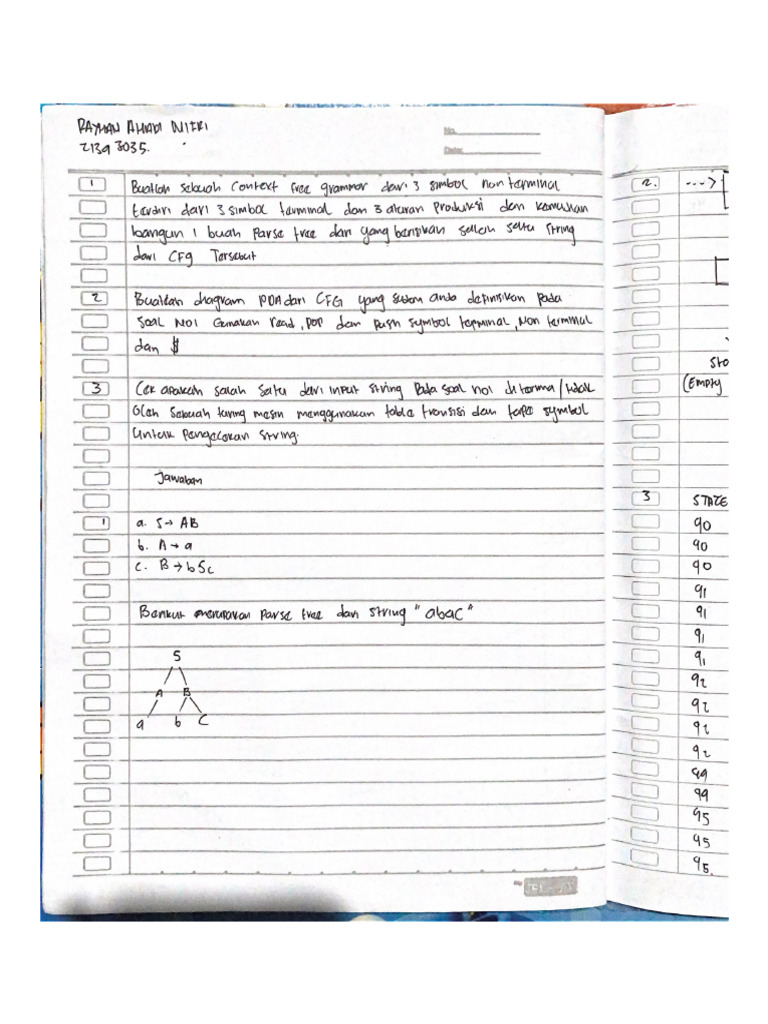 RAYHAN AHADI NITRI
21393035.
No.
Date:
1 Buatlah sebuah Context free grammar dari 3 simbol non terminal
terdiri dari 3 simbol terminal dan 3 aturan produksi dan kemudian
bangun 1 buah parse tree dan yang berisikan salah satu string
dari CFG Tersebut
2 Buatlah diagram PDA dari CFG yang sudah anda definisikan pada
soal No1 Gunakan read, pop dan push symbol terminal, Non terminal
dan $
3 Cek apakah salah satu dari input string pada soal no1 diterima/tidak
oleh sebuah turing mesin menggunakan table transisi dan tape symbol
untuk pengecekan string.
Jawaban
1 a. S→ AB
b. A→ a
c. B→ bSc
Berikut merupakan parse tree dari string "abac"
S
A B
a b C
2. --->
Sto
(Empty
3 STATE
q0
q0
q0
q1
q1
q1
q1
q2
q2
q2
q2
q9
q9
q5
q5
q5.